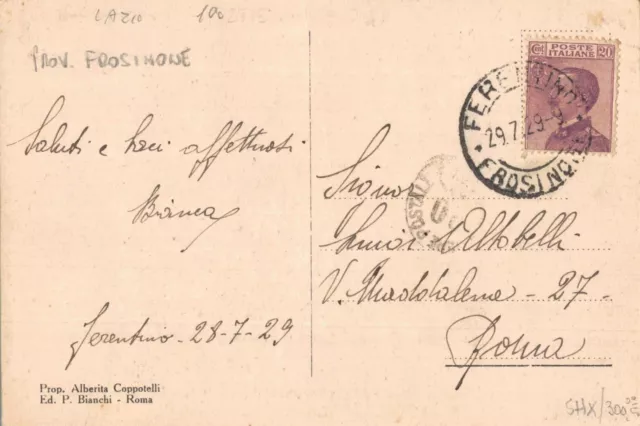 LAZIO 100
PROV. FROSINONE
Saluti e baci affettuosi
Bianca
Ferentino - 28-7-29
Prop. Alberita Coppotelli
Ed. P. Bianchi - Roma
Cent POSTE ITALIANE 20
FERENTINO
29.7.29-9
FROSINONE
POSTALE
Signor
Luigi Altobelli
V. Maddalena - 27 -
Roma